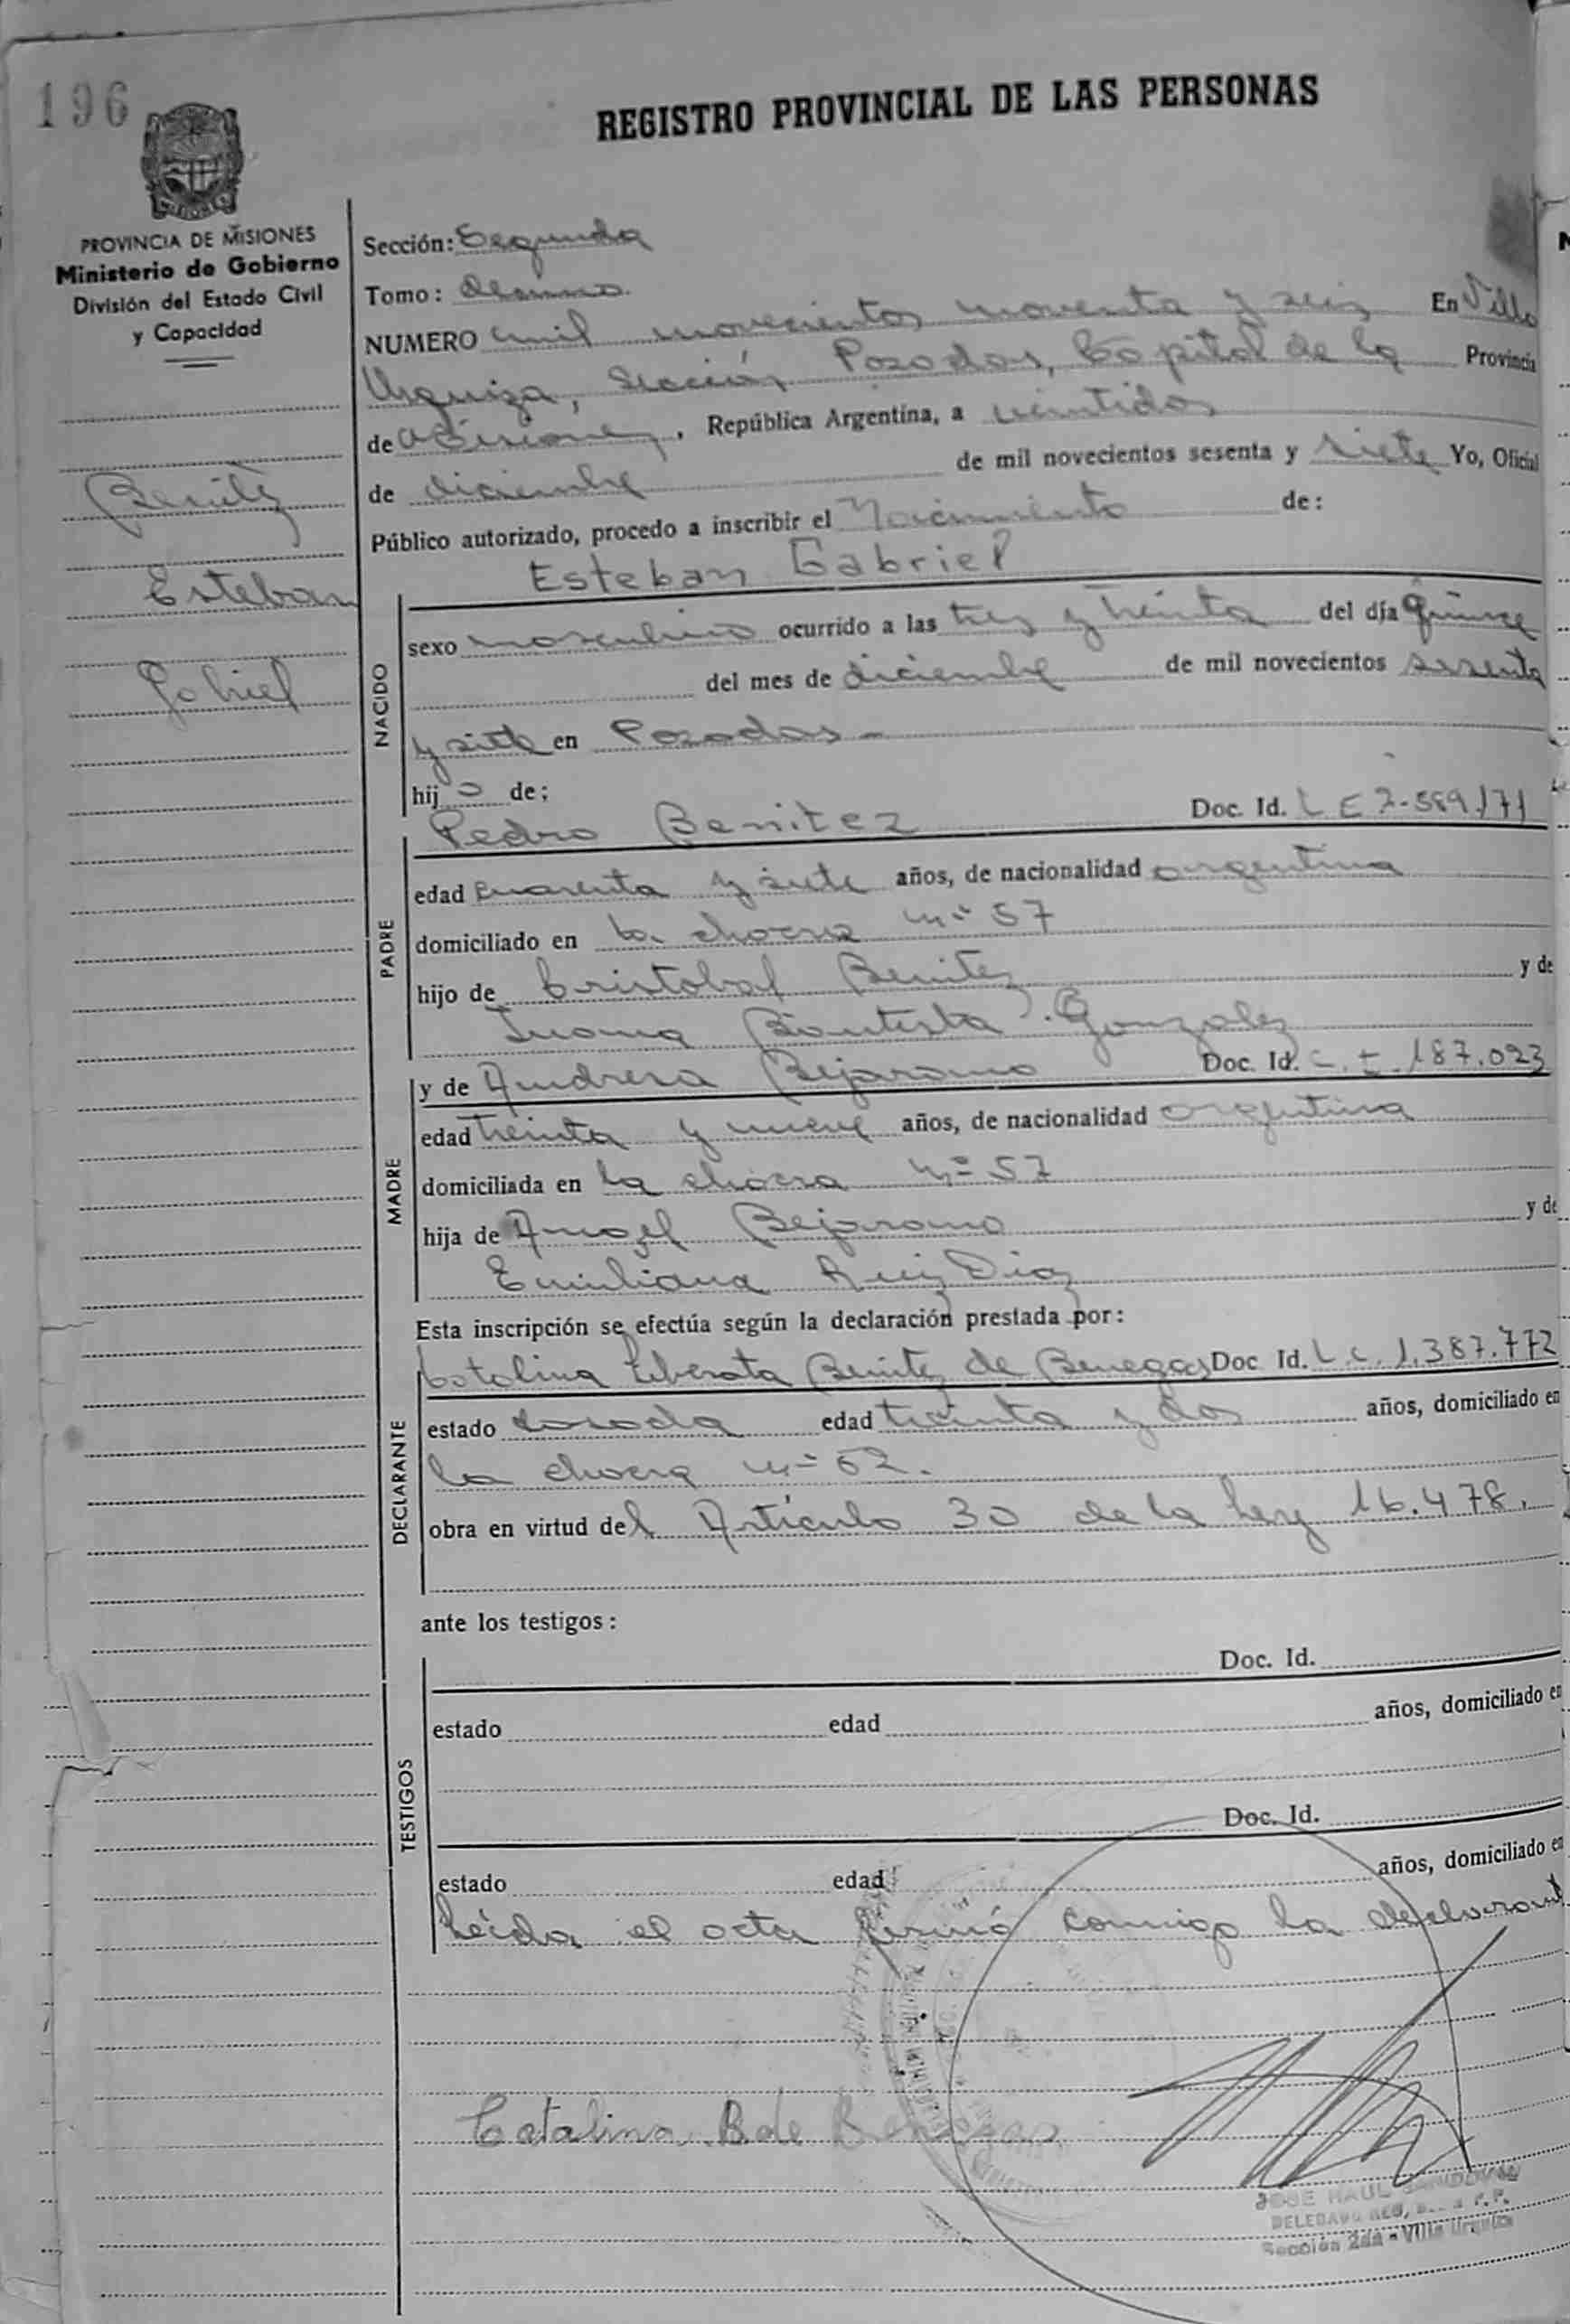 196
REGISTRO PROVINCIAL DE LAS PERSONAS
PROVINCIA DE MISIONES
Ministerio de Gobierno
División del Estado Civil
y Capacidad
Benitez
Esteban
Gabriel
Sección: Segunda
Tomo: decimo.
NUMERO mil novecientos noventa y seis En Villa
Urquiza, Sección Posadas, Capital de la Provincia
de Misiones, República Argentina, a veintidos
de diciembre de mil novecientos sesenta y siete Yo, Oficial
Público autorizado, procedo a inscribir el Nacimiento de:
Esteban Gabriel
NACIDO
sexo masculino ocurrido a las tres y treinta del día quince
del mes de diciembre de mil novecientos sesenta
y siete en Posadas -
hijo de;
PADRE
Pedro Benitez Doc. Id. L E
edad cuarenta y siete años, de nacionalidad argentina
domiciliado en la chacra nº 57
hijo de Cristobal Benitez y de
Juana Bautista Gonzalez
MADRE
y de Andresa Bejarano Doc. Id. 187.023
edad treinta y nueve años, de nacionalidad argentina
domiciliada en la chacra nº 57
hija de Angel Bejarano y de
Emiliana Ruiz Diaz
Esta inscripción se efectúa según la declaración prestada por:
DECLARANTE
Catalina Liberata Benitez de Benegas Doc Id. L.C. 1.387.772
estado casada edad treinta y dos años, domiciliado en
la chacra nº 62.
obra en virtud del Artículo 30 de la Ley 16.478.
ante los testigos:
TESTIGOS
Doc. Id.
estado edad años, domiciliado en
Doc. Id.
estado edad años, domiciliado en
Leída el acta firmó conmigo la declarant
Catalina B de Benegas
JOSE RAUL SANDOVAL
DELEGADO REG,
Sección 2da - Villa Urquiza